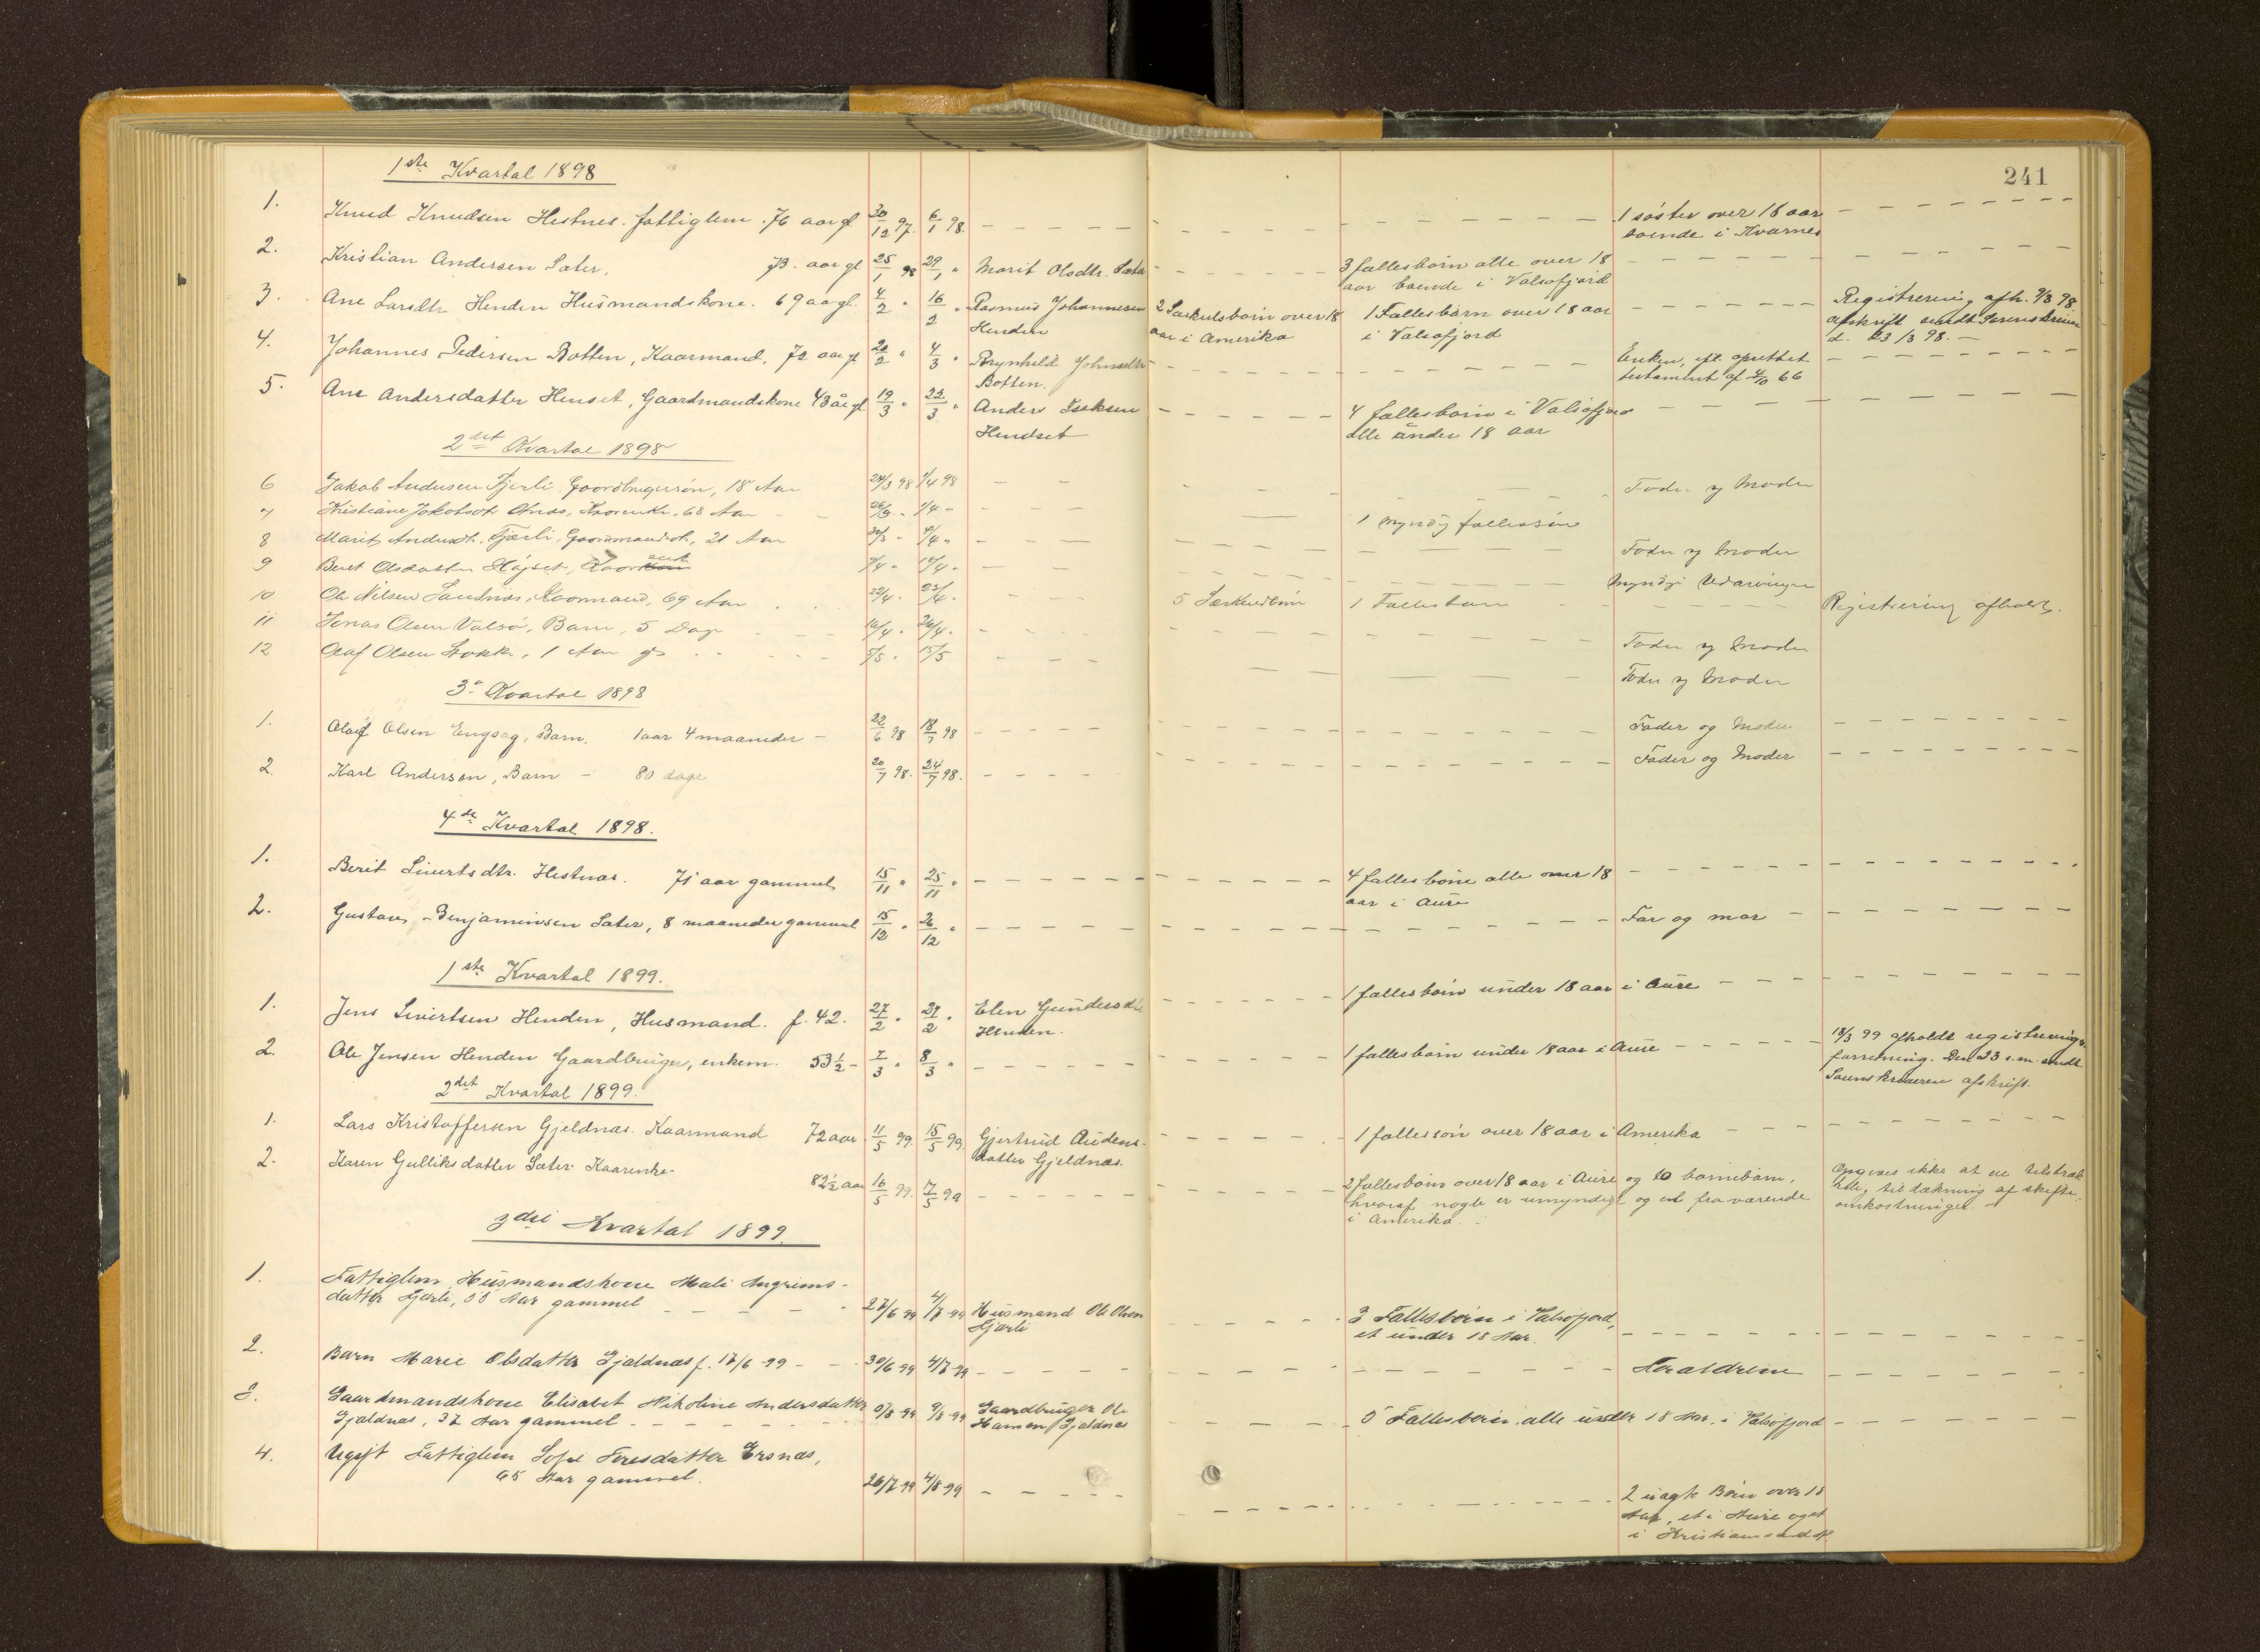 241
1ste Kvartal 1898
1. Knud Knudsen Hestnes. fattiglem. 76 aar gl 30/12 97. 6/1 98. 1 søster over 18 aar
boende i Kvernes
2. Kristian Andersen Sæter, 73. aar gl. 25/1 98 29/1 " Marit Olsdtr. Sæter 3 fællesbørn alle over 18
aar boende i Valsøfjord
3. Ane Larsdtr Henden Husmandskone. 69 aar gl. 4/2 " 16/2 " Rasmus Johannesen 2 Særkulsbørn over 18 1 Fællesbarn over 18 aar Registrering afh. 9/3 98
Henden aar i Amerika i Valsøfjord afskrift sendt Sorenskriver
d. 23/3 98. —
4. Johannes Pedersen Botten, Kaarmand, 72 aar gl 20/2 " 4/3 " Brynhild Johnsdtr Enken, ifl. oprettet
Botten. testament af 4/10 66
5. Ane Andersdatter Henset, Gaardmandskone 43 år gl 19/3 " 22/3 " Anders Isaksen 4 fællesbørn i Valsøfjord
Hendset alle under 18 aar
2det Kvartal 1898
6 Jakob Andersen Fjerli Gaardbrugersøn, 18 Aar 24/3 98 1/4 98 Fader og Moder
7 Kristiane Jakobsdtr, Kaarenke. 68 Aar 26/3 " 1/4 " 1 myndig fællessøn
8 Marit Andersdt. Fjærli, Gaardmandsdt., 21 Aar 30/3 " 4/4 " Fader og Moder
9 Beret Olsdatter Højset, Myndige Udarvinger
10 Ole Nilsen Sandnæs, Kaarmand, 69 Aar 22/4. 23/4. 5 Særkuldbørn 1 Fællesbarn Registrering afholdt.
11 Jonas Olsen Valsø, Barn, 5 Dage 16/4. 26/4. Fader og Moder
12 Olaf Olsen Stokke, 1 Aar gl 5/5. 15/5 Fader og Moder
3. Kvartal 1898
1. Olaf Olsen Engsag, Barn, 1 aar 4 maaneder 22/6 98 18/7 98 Fader og Moder
2. Karl Andersen, Barn 80 dage 20/7 98. 24/7 98. Fader og Moder
4de Kvartal 1898.
1. Berit Sivertsdtr. Hestnæs. 71 aar gammel 15/11 " 25/11 " 4 fællesbørn alle over 18
aar i Aure
2. Gustav Benjaminsen Sæter, 8 maaneder gammel 15/12 " 26/12 " Far og mor
1ste Kvartal 1899.
1. Jens Sivertsen Henden, Husmand. f. 42. 27/2 " 29/2 " Elen Gundersdtr 1 fællesbørn under 18 aar i Aure
Henden.
2. Ole Jensen Henden Gaardbruger, enkem. 53 1/2 7/3 " 8/3 " 1 fællesbørn under 18 aar i Aure 18/3 99 afholdt registrerings
forretning. Den 23 s.m. sendt
Sorenskriveren afskrift.
2det Kvartal 1899.
1. Lars Kristoffersen Gjeldnæs. Kaarmand 72 aar 11/5 99. 15/5 99. Gjertrud Audens- 1 fællessøn over 18 aar i Amerika
datter Gjeldnæs.
2. Karen Gulliksdatter Sæter Kaarenke 82 1/2 aar 16/5 99. 17/5 99 2 fællesbørn over 18 aar i Aure og 10 barnebørn, Opgives ikke at ee tilstræk
hvoraf nogle er umyndige og fraværende kelig til dækning af skifte
i Amerika. omkostninger.
3die Kvartal 1899.
1. Fattiglem Husmandskone Mali Ingrims-
datter Fjærli, 55 Aar gammel 27/6 99 4/7 99 Husmand Ole Olsen 3 Fællesbørn i Valsøfjord,
Fjærli et under 18 Aar.
2. Barn Marie Olsdatter Gjældnæs f. 17/6 99 30/6 99 4/7 99 Forældrene
3. Gaardmandskone Elisabet Nikoline Andersdatter 5/8 99 9/8 99 Gaardbruger Ole 5 Fællesbørn, alle under 18 Aar, i Valsøfjord
Gjældnæs, 37 Aar gammel Hansen Gjældnæs
4. Ugift Fattiglem Sofie Toresdatter Ersnæs,
65 Aar gammel. 26/7 99 4/8 99 2 uægte Børn over 18
Aar, et i Aure og et
i Kristiansund.